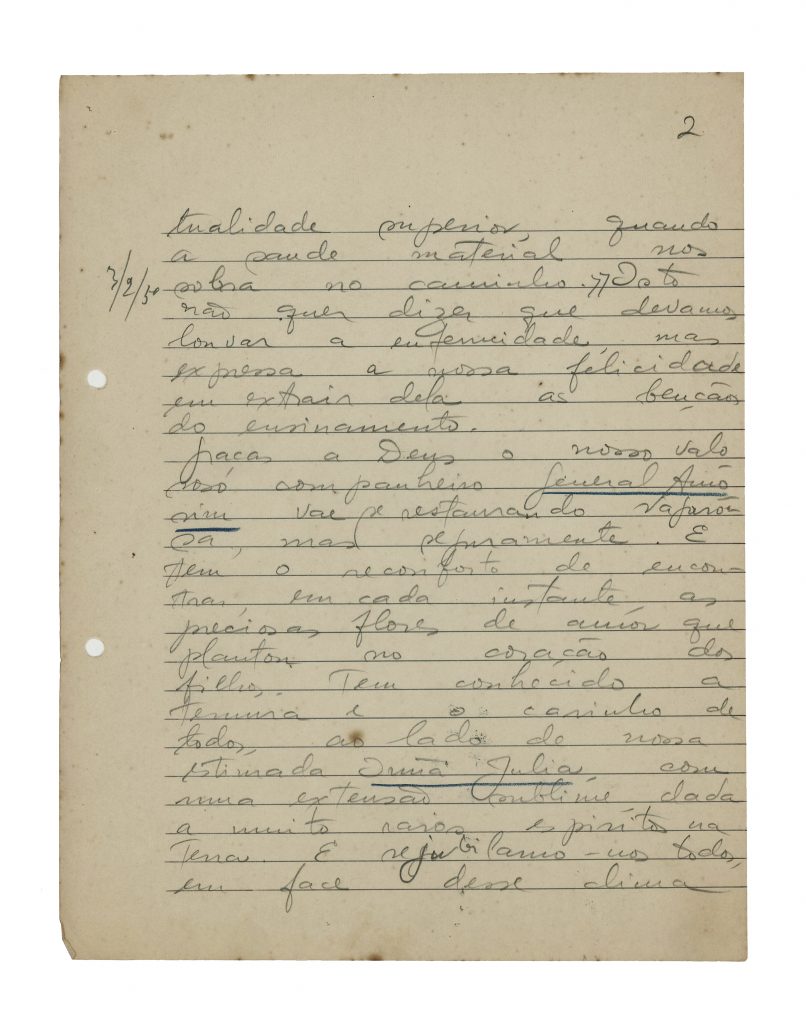 2
tualidade superior, quando
a saude material nos
3/2/50
sobra no caminho. Isto
não quer dizer que devamos
louvar a enfermidade, mas
expressa a nossa felicidade
em extrair dela as bençãos
do ensinamento.
Graças a Deus o nosso valo
roso companheiro General Amo
rim vae se restaurando vagaro
sa, mas seguramente. E
tem o reconforto de encon-
trar, em cada instante, as
preciosas flores de amôr que
plantou no coração dos
filhos. Tem conhecido a
ternura e o carinho de
todos, ao lado de nossa
estimada Irmã Julia, com
uma extensão sublime, dada
a muito raros espiritos na
Terra. E rejubilamo-nos todos,
em face desse clima